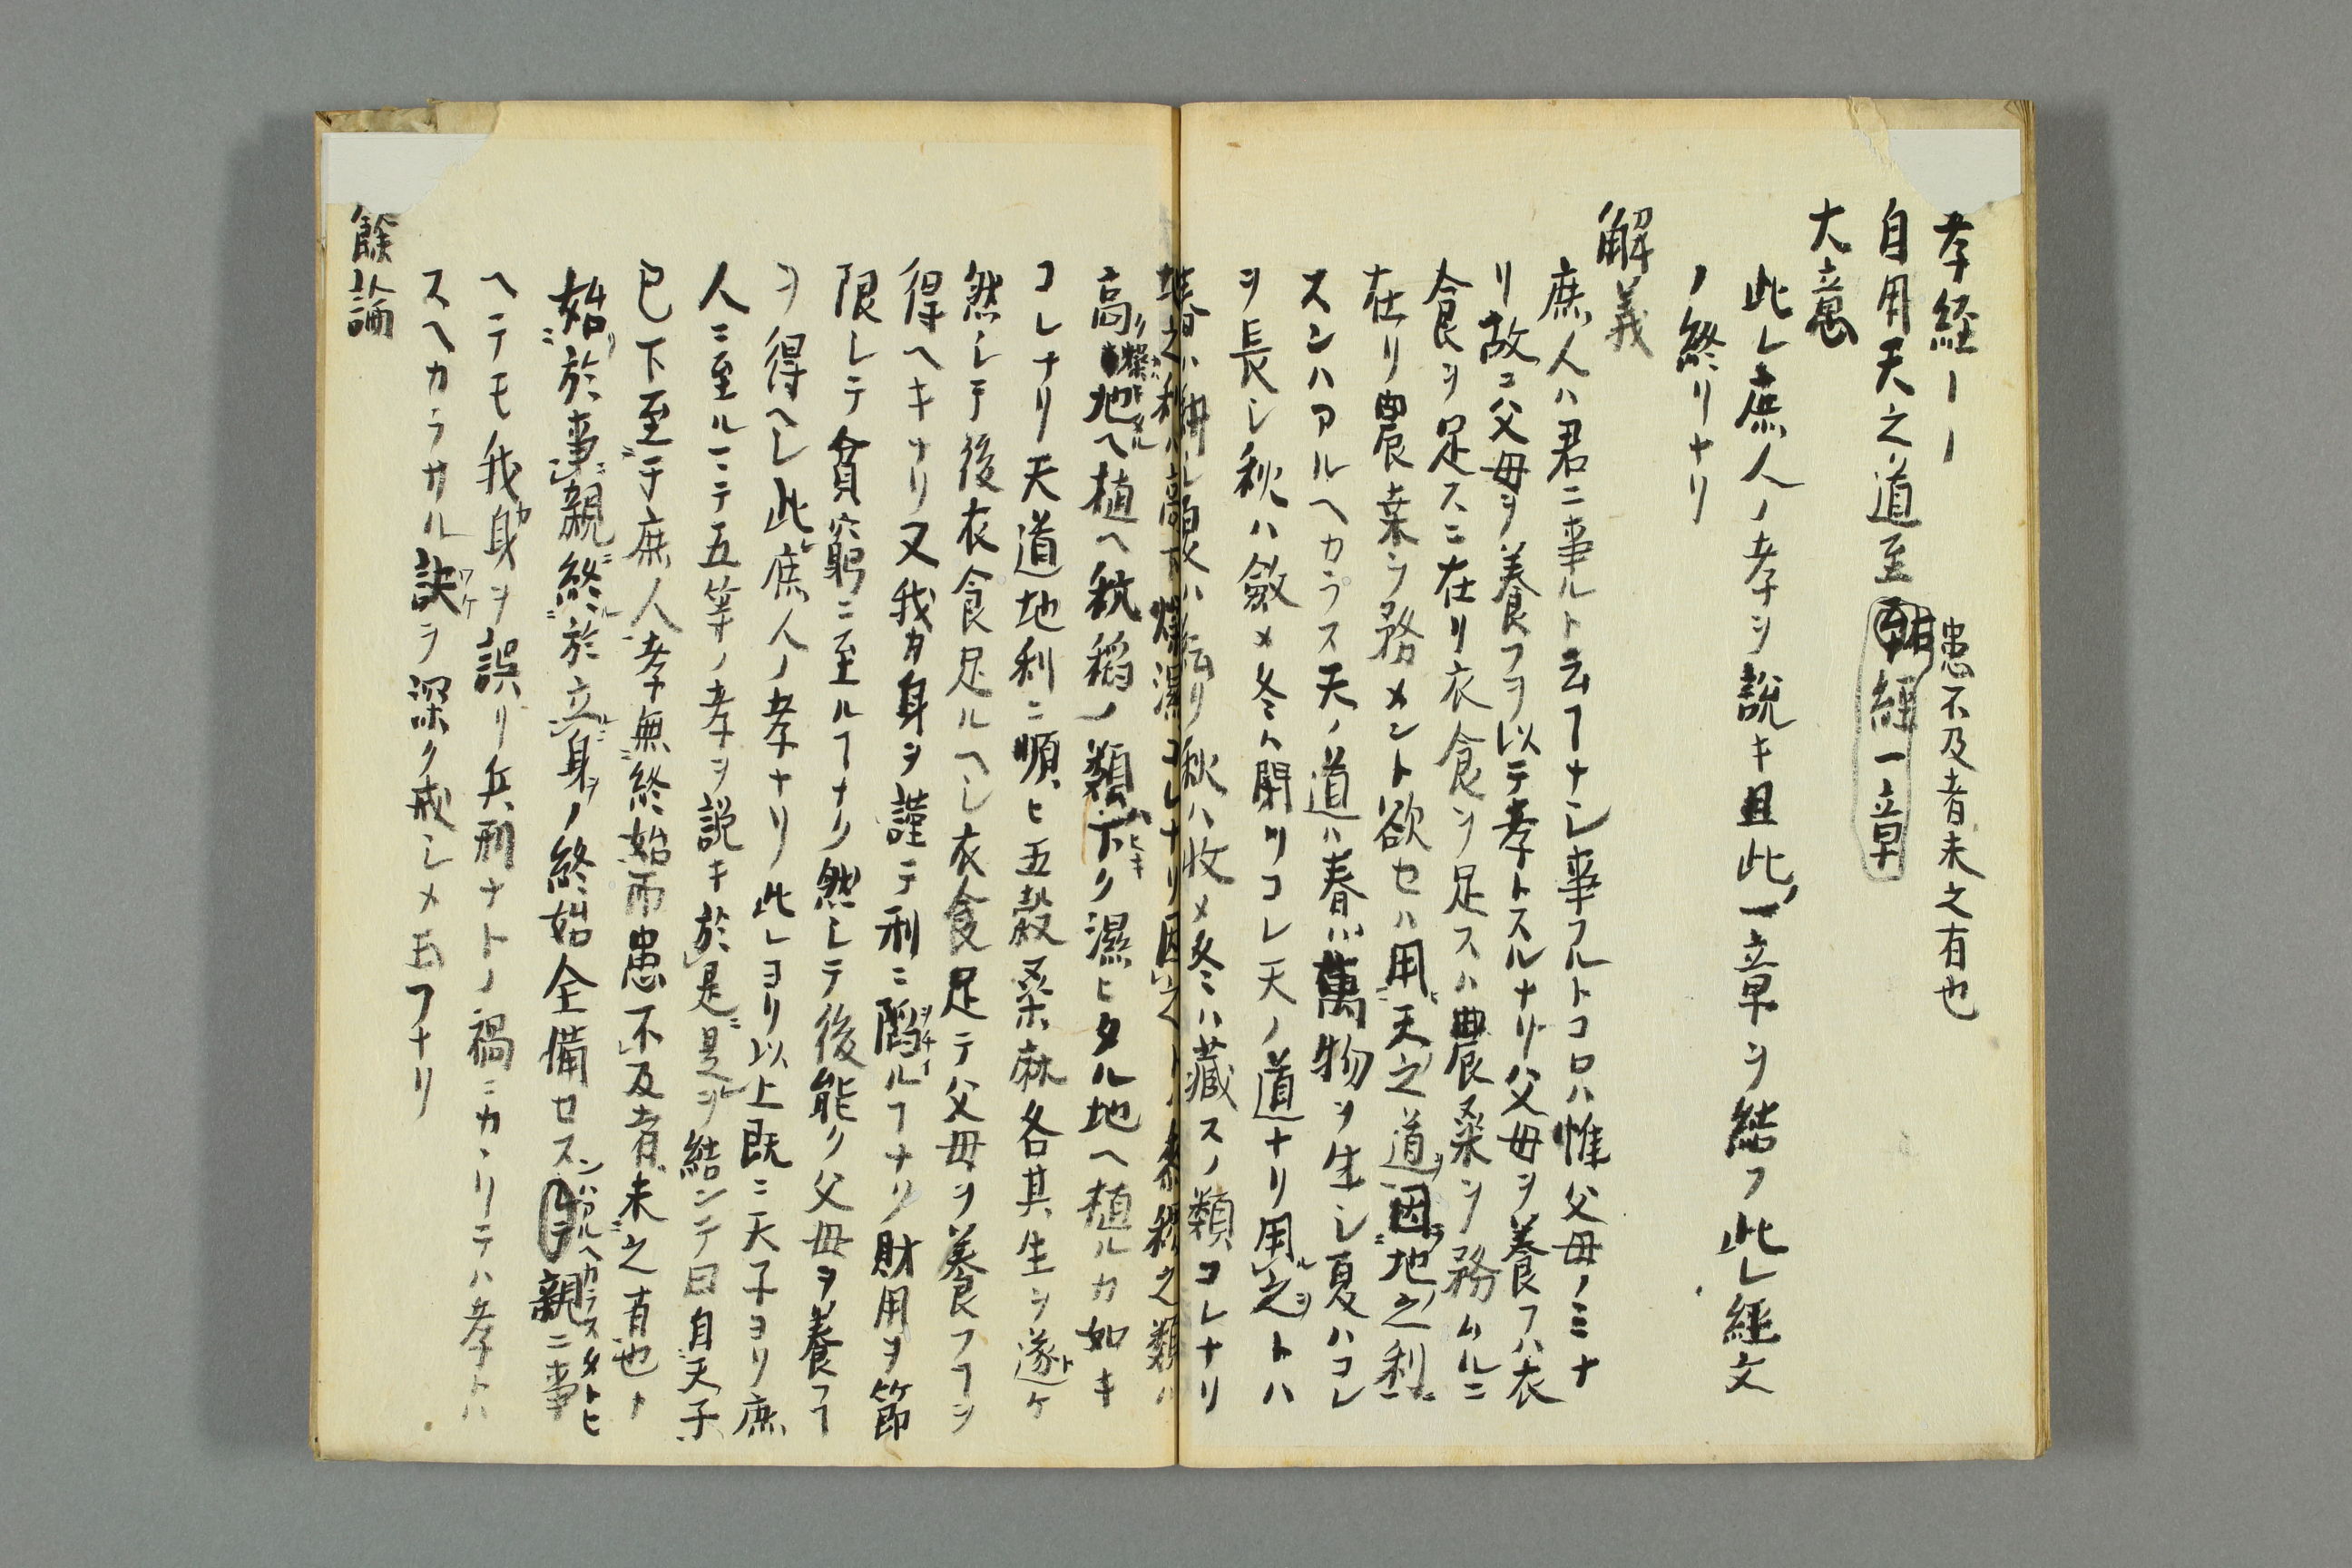 孝経ーー
自用天之道至患不及者未之有也
經一章
大意
此レ庶人ノ孝ヲ説キ且此ノ一章ヲ結フ此レ經文
ノ終リナリ
解義
庶人ハ君ニ事ルト云フヿナシ事フルトコロハ惟父母ノミナ
リ故ニ父母ヲ養フヲ以テ孝トスルナリ父母ヲ養フハ衣
食ヲ足スニ在リ衣食ヲ足スハ農桑ヲ務ムルニ
在リ農桒ヲ務メント欲セハ用天之道因地之利
スンハアルヘカラス天ノ道ハ春ハ萬物ヲ生シ夏ハコレ
ヲ長シ秋ハ斂メ冬ハ閉ツコレ天ノ道ナリ用之トハ
春ハ耕シ夏ハ耘リ秋ハ收メ冬ハ藏スノ類コレナリ
地之利ハ高下燥濕コレナリ因之トハ黍稷之類ハ
高ク燥キタル地ヘ植ヘ秔稻ノ類ハ下ク濕ヒタル地ヘ植ルカ如キ
コレナリ天道地利ニ順ヒ五穀桑麻各其生ヲ遂ケ
然シテ後衣食足ルヘシ衣食足テ父母ヲ養フヿヲ
得ヘキナリ又我カ身ヲ謹テ刑ニ陷ルヿナク財用ヲ節
限シテ貧窮ニ至ルヿナク然シテ後能ク父母ヲ養フヿ
ヲ得ヘシ此レ庶人ノ孝ナリ此レヨリ以上既ニ天子ヨリ庶
人ニ至ルマテ五等ノ孝ヲ説キ於是是ヲ結ンテ曰自天子
已下至于庶人孝無終始而患不及者未之有也ト
始於事親終於立身ノ終始全備セスンハ説ヘカラスタトヒ親ニ事
ヘテモ我カ身ヲ誤リ兵刑ナトノ禍ニカヽリテハ孝トハ
スヘカラサル訣ヲ深ク戒シメ玉フナリ
餘論